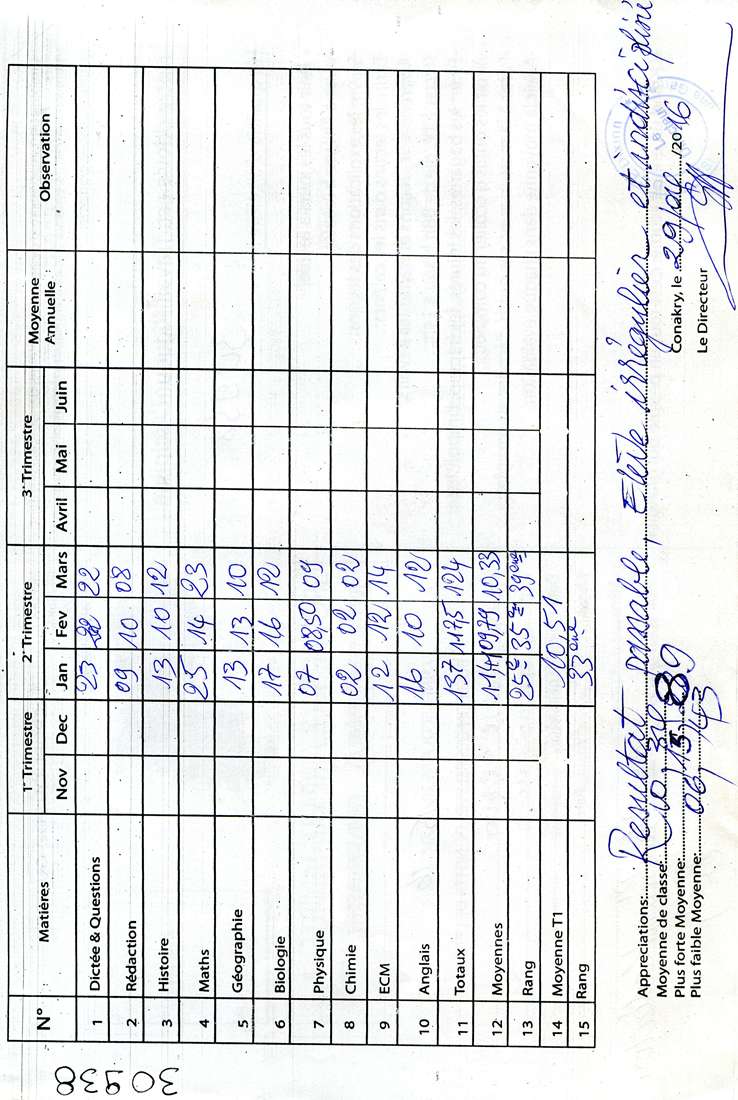 30938
N° Matières 1° Trimestre 2° Trimestre 3° Trimestre Moyenne Annuelle Observation
Nov Dec Jan Fev Mars Avril Mai Juin
1 Dictée & Questions 23 22 22
2 Rédaction 09 10 08
3 Histoire 13 10 12
4 Maths 25 14 23
5 Géographie 13 13 10
6 Biologie 17 16 12
7 Physique 07 08,50 09
8 Chimie 02 02 02
9 ECM 12 12 14
10 Anglais 16 10 12
11 Totaux 137 117,5 124
12 Moyennes 11,41 09,79 10,33
13 Rang 25e 35e 39ème
14 Moyenne T1 10,51
15 Rang 33ème
Appreciations: Resultat passable, Elève irrégulier et indiscipliné
Moyenne de classe: 10,
Plus forte Moyenne: 15, 89
Plus faible Moyenne: 06,43
Conakry, le 29/04/2016
Le Directeur